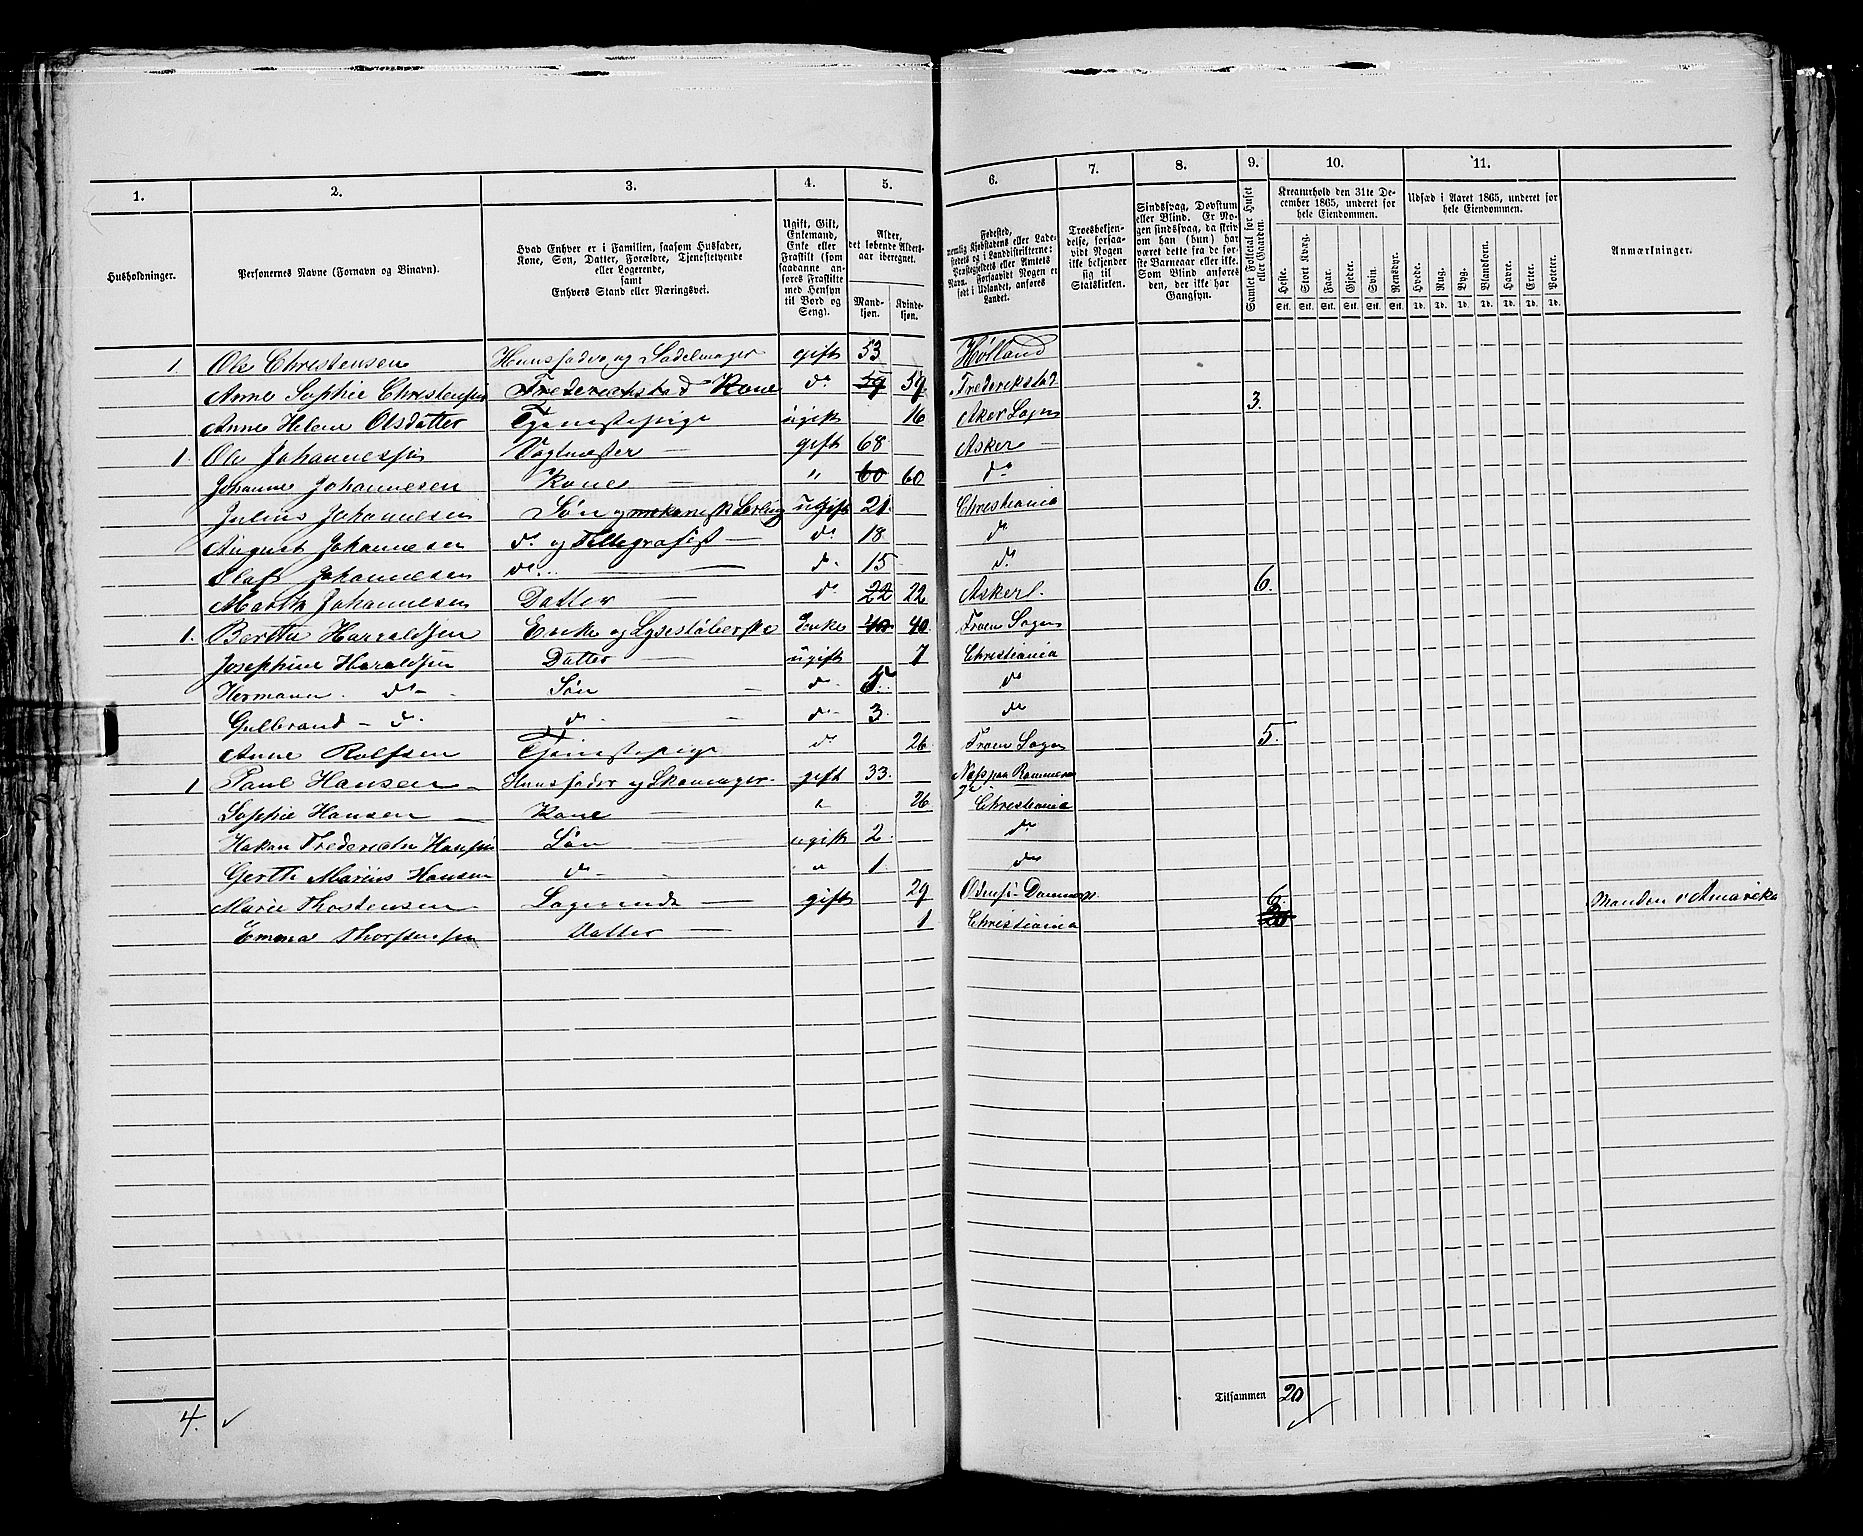 1. 2. 3. 4. 5. 6. 7. 8. 9. 10. 11.
Husholdninger.
Personernes Navne (Fornavn og Binavn).
Hvad Enhver er i Familien, saasom Husfader, Kone, Søn, Datter, Forældre, Tjenestetyende eller Logerende, samt Enhvers Stand eller Næringsvei.
Ugift, Gift, Enkemand, Enke eller Fraskilt (som saadanne ansøres Fraskilte med Hensyn til Bord og Seng).
Alder, det løbende Alders-aar iberegnet.
Mand-kjøn. Kvinde-kjøn.
Fødested, nemlig Kjøbstadens eller Ladestedets og i Landdistrikterne: Præstegjeldets eller Amtets Navn. Forsaavidt Nogen er født i Udlandet, anføres Landet.
Troesbekjendelse, forsaavidt Nogen ikke bekjender sig til Statskirken.
Sindssvag, Døvstum eller Blind. Er Nogen sindssvag, da skriv om han (hun) har været dette fra første Barneaar eller ikke. Som Blind ansøres den, der ikke har Gangsyn.
Samlet Folketal for Huset eller Gaarden.
Kreaturhold den 31te December 1865, underet for hele Eiendommen.
Heste. Stort Kvæg. Faar. Gjeder. Svin. Rensdyr.
Stk. Stk. Stk. Stk. Stk. Stk.
Udsæd i Aaret 1865, underet for hele Eiendommen.
Hvede. Rug. Byg. Blandkorn. Havre. Erter. Poteter.
Td. Td. Td. Td. Td. Td. Td.
Anmærkninger.
1 Ole Christensen Huusfader og Sadelmager gift 53 Holland
Anne Sophie Christensen Frederichstad Kone do 59 59. Frederikstad
Anne Helene Olsdatter Tjenestepige ugift 16 Aker Sogn 3.
1. Ole Johannessen gift 68 Asker
Johanne Johannesen Kone " 60 60 do
Julius Johannesen Søn og mekanisk ugift 21. Christiania
August Johannesen do og Tellegrafist do 18 do
Olaf Johannesen do do 15 do 6.
Martha Johannesen Datter do 22 22 Asker
1. Berthe Harraldsen Enke og Enke 40 40. Froen Sogn
Josephine Haraldsen Datter ugift 7 Christiania
Hermann do Søn do 5. do
Gulbrand do do do 3. do
Anne Rolfsen Tjenestepige do 26 Froen Sogn 5.
1 Paul Hansen Huusfader og Skomager gift 33. Næs paa Rommerige
Sophie Hansen Kone " 26 Christiania
Hakon Frederick Hansen Søn ugift 2. do
Gerth Marius Hansen do " 1. do
Marie Thostensen Logerende gift 29 Odense Danmark 6. Manden i Amarika
Emma Thorstensen Datter 1 Christiania 20
4. Tilsammen 20